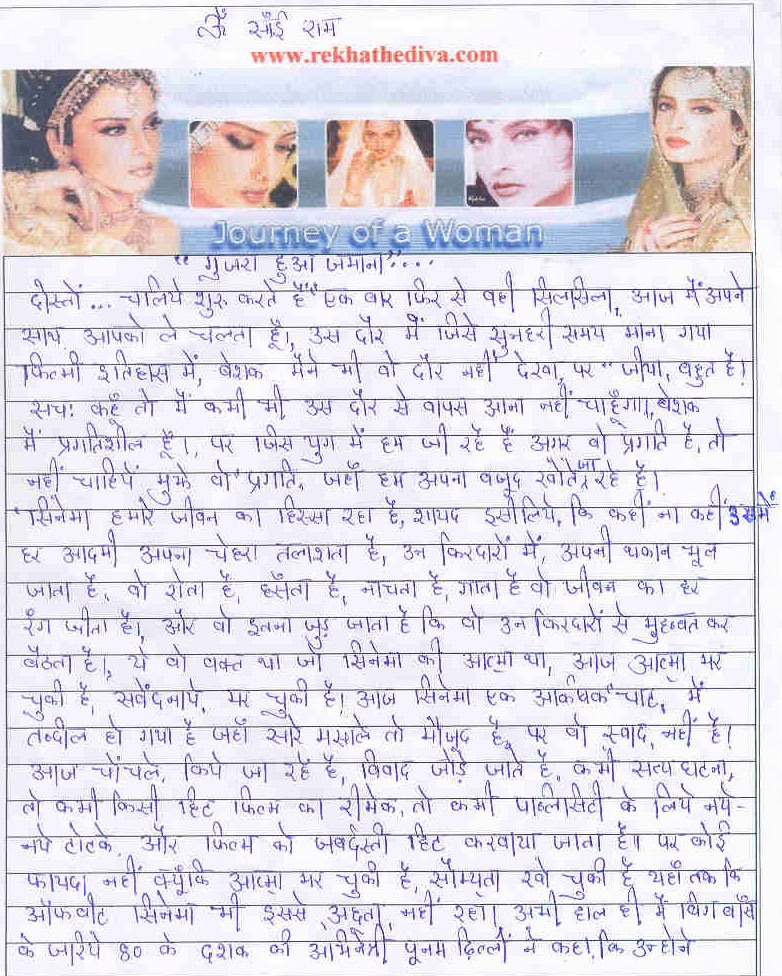 ॐ साँई राम
www.rekhathediva.com
Journey of a Woman
"गुजरा हुआ जमाना"...
दोस्तों... चालिये शुरु करते हैं" एक बार फिर से वही सिलासिला, आज मैं अपने
साथ आपको ले चलता हूँ।, उस दौर में जिसे सुनहरी समय माना गया
फिल्मी इतिहास में, बेशक मैने भी वो दौर नहीं देखा, पर "जीया, बहुत है।
सच! कहूँ तो मैं कभी भी उस दौर से वापस आना नहीं चाहूँगा।, बेशक
मैं प्रगतिशील हूँ।, पर जिस युग में हम जी रहे हैं अगर वो प्रगति है, तो
नहीं चाहिये मुझे वो प्रगति, जहाँ हम अपना वजूद खोते जा रहे है।
"सिनेमा हमारे जीवन का हिस्सा रहा है, शायद इसीलिये, कि कहीं ना कहीं उसमें
हर आदमी अपना चेहरा तलाशता है, उन किरदारों में, अपनी थकान भूल
जाता है, वो रोता है, हसँता है, नाचता है, गाता है वो जीवन का हर
रंग जीता है।, और वो इतना जुड़ जाता है कि वो उन किरदारों से मुहब्बत कर
बैठता है।, ये वो वक्त था जो सिनेमा की आत्मा था, आज आत्मा मर
चुकी है, सवेंदनाये, मर चुकी है। आज सिनेमा एक आर्कषक चाट, में
तब्दील हो गया है जहाँ सारे मसाले तो मौजूद है, पर वो स्वाद, नहीं है।
आज चोंचले, किये जा रहें है, विवाद जोड़े जाते है, कभी सत्य घटना,
तो कभी किसी हिट फिल्म का रीमेक, तो कभी पाब्लिसिटी के लिये नये-
नये टोटके, और फिल्म को जबर्दस्ती हिट करवाया जाता है। पर कोई
फायदा, नहीं क्यूँकि आत्मा मर चुकी है, सौम्यता खो चुकी है यहाँ तक कि
ऑफबीट सिनेमा भी इससे अछुता, नहीं रहा। अभी हाल ही में बिग बॉस
के जरिये 80 के दशक की अभिनेत्री पूनम ढिल्लों ने कहा, कि उन्होने